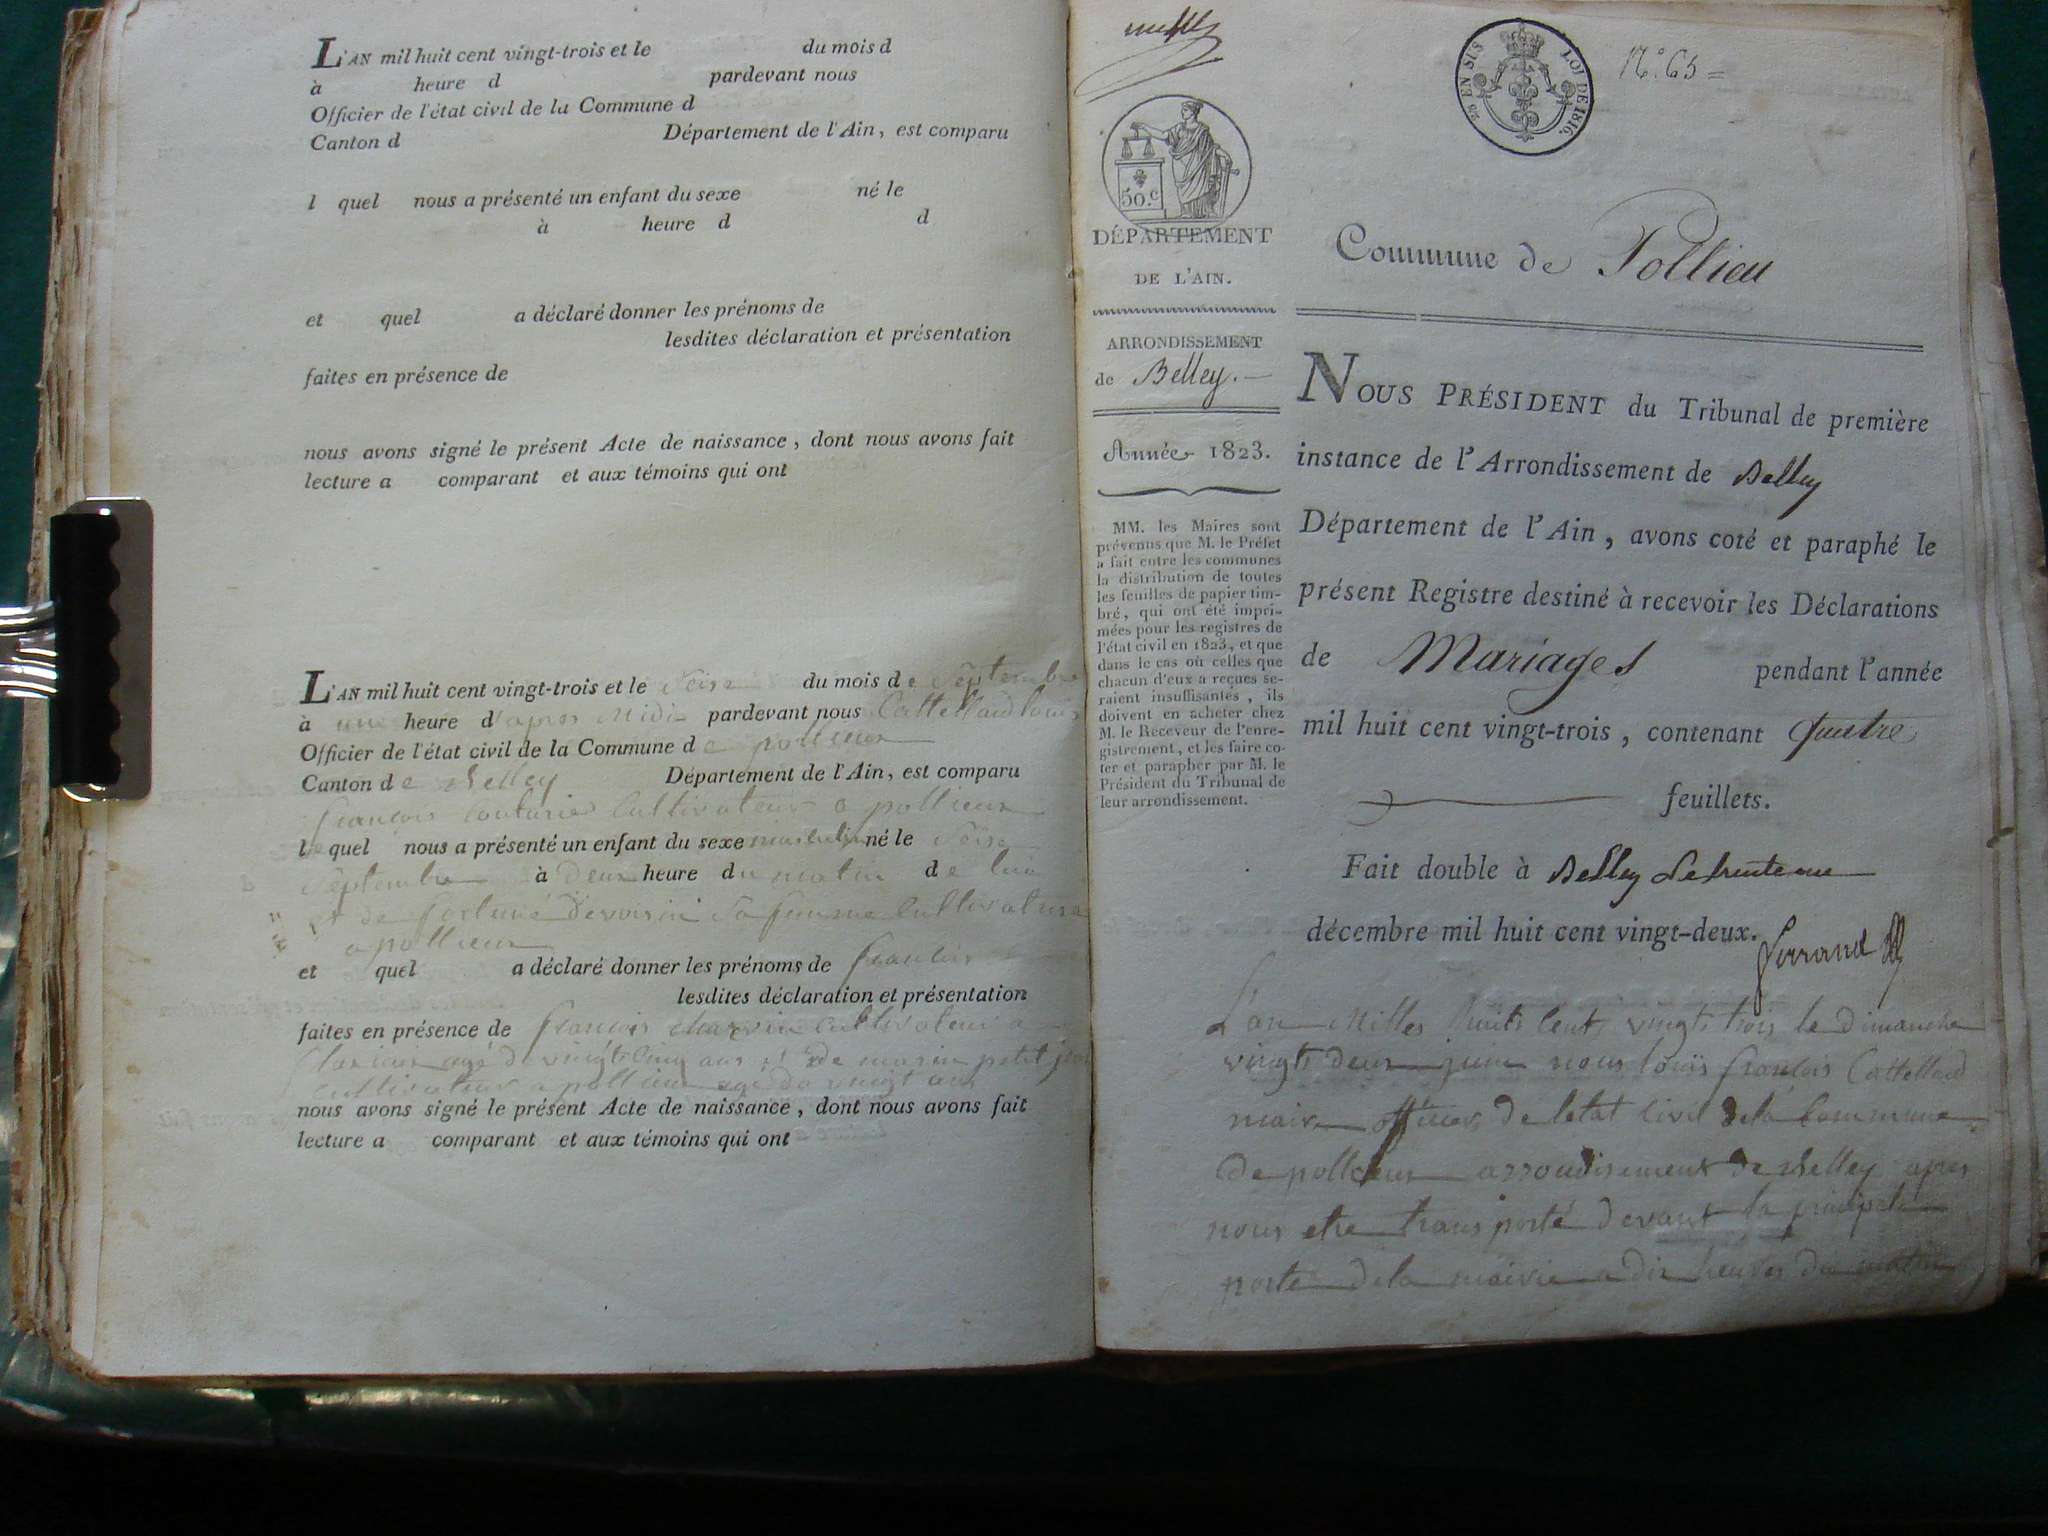 L'AN mil huit cent vingt-trois et le du mois d
à heure d pardevant nous
Officier de l'état civil de la Commune d
Canton d Département de l'Ain, est comparu
l quel nous a présenté un enfant du sexe né le
à heure d d
et quel a déclaré donner les prénoms de
lesdites déclaration et présentation
faites en présence de
nous avons signé le présent Acte de naissance, dont nous avons fait
lecture a comparant et aux témoins qui ont
L'AN mil huit cent vingt-trois et le seise du mois de septembre
à une heure d'apres midi pardevant nous Cattelland louis
Officier de l'état civil de la Commune de pollieux
Canton de Belley Département de l'Ain, est comparu
françois cultivateur a pollieux
lequel nous a présenté un enfant du sexe masculin né le seise
septembre à deux heure du matin de lui
et de sa femme cultivatrise
a pollieux
et quel a déclaré donner les prénoms de françois
lesdites déclaration et présentation
faites en présence de françois cultivateur a
agé de vingt cinq ans et de petit jean
cultivateur a pollieux agé de vingt ans
nous avons signé le présent Acte de naissance, dont nous avons fait
lecture a comparant et aux témoins qui ont
50.c
DÉPARTEMENT
DE L'AIN.
ARRONDISSEMENT
de Belley.
Année 1823.
MM. les Maires sont
prévenus que M. le Préfet
a fait entre les communes
la distribution de toutes
les feuilles de papier tim-
bré, qui ont été impri-
mées pour les registres de
l'état civil en 1823, et que
dans le cas où celles que
chacun d'eux a reçues se-
raient insuffisantes, ils
doivent en acheter chez
M. le Receveur de l'enre-
gistrement, et les faire co-
ter et parapher par M. le
Président du Tribunal de
leur arrondissement.
EN SUS LOI DE 1816.
N.o 65
Commune de Pollieu
NOUS PRÉSIDENT du Tribunal de première
instance de l'Arrondissement de Belley
Département de l'Ain, avons coté et paraphé le
présent Registre destiné à recevoir les Déclarations
de Mariages pendant l'année
mil huit cent vingt-trois, contenant quatre
feuillets.
Fait double à Belley le trente un
décembre mil huit cent vingt-deux.
L'an milles huits cent vingt trois le dimanche
vingt deux juin nous louis françois Cattelland
maire officier de letat civil de la Commune
de pollieux arrondisement de Belley apres
nous etre transporté devant la principale
porte de la mairie a dix heures du matin